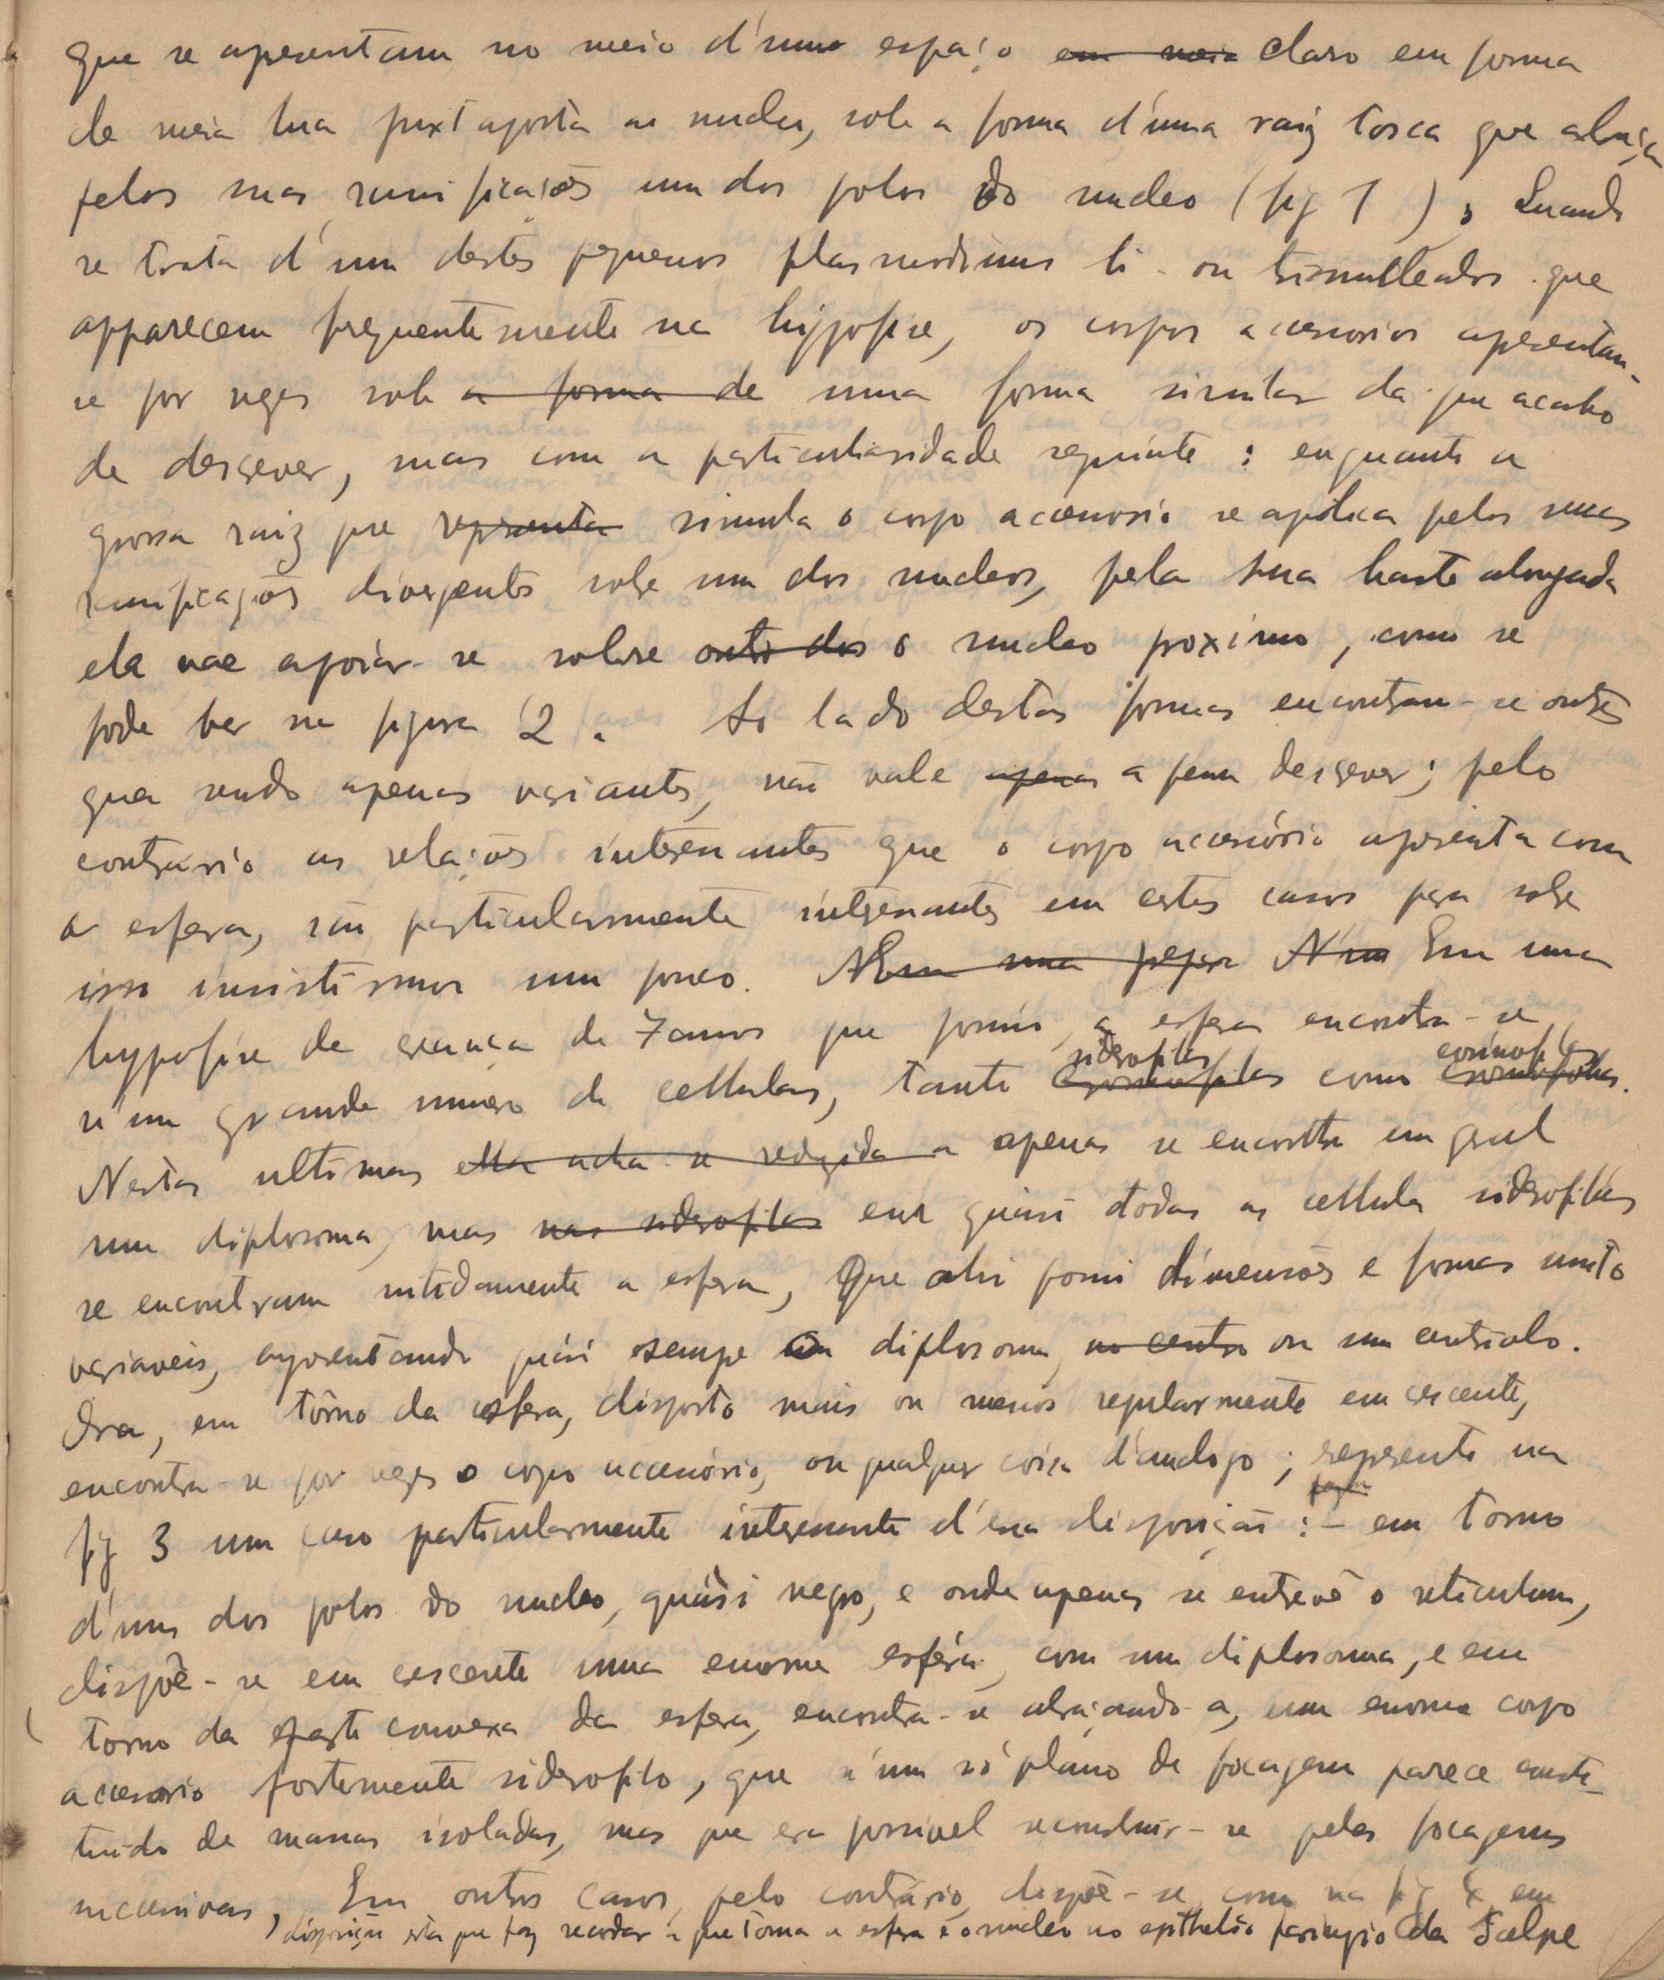 que se apresentam no meio d'um espaço em meia claro em forma
de meia lua juxtaposta ao nucleo, sob a forma d'uma raiz tosca que abraça
pelas suas ramificações um dos polos do nucleo (fig 1). Quando
se trata d'um destes pequenos plasmodiums bi- ou trinucleados que
apparecem frequentemente na hypofise, os corpos accessorios apresentam-
se por vezes sob a forma de uma forma similar da que acabo
de descrever, mas com a particularidade seguinte: enquanto a
grossa raiz que representa simula o corpo accessorio se aplica pelas suas
ramificações divergentes sobre um dos nucleos, pela sua haste alongada
ela vae apoiar-se sobre outro dos o nucleo proximo, como se
pode ver na figura 2. Ao lado destas formas encontram-se outras
que sendo apenas variantes, não vale apenas a pena descrever; pelo
contrario as relações interessantes que o corpo accessório apresenta com
a esfera, são particularmente interessantes em certos casos para sobre
isso insistirmos um pouco. Em uma Em uma
hypofise de creança de 7 annos que possuo, a esfera encontra-se
n'um grande numero de cellulas, tanto siderofilas como cosinofilas
Nestas ultimas ella acha-se reduzida a apenas se encontra em geral
um diplosoma, mas nas siderofilas em quási todas as cellulas siderofilas
se encontram nitidamente a esfera, que ahi possui dimensões e formas muito
variaveis, apresentando quási sempre um diplosoma, no centro ou um centriolo.
Ora, em tôrno da esfera, disposto mais ou menos regularmente em crescente,
encontra-se por vezes o corpo accessório, ou qualquer coisa d'analogo; represento na
fig 3 um caso particularmente interessante d'essa disposição: - em torno
d'um dos polos do nucleo, quási negro, e onde apenas se entrevê o reticulum,
dispõe-se em crescente uma enorme esféra, com um diplosoma, e em
torno da parte convexa da esfera, encontra-se abraçando-a, um enorme corpo
accesorio fortemente siderofilo, que n'um só plano de focagem parece consti-
tuido de massas isoladas, mas que era possivel reconstruir-se pelas focagens
successivas, Em outros casos, pelo contrário, dispõe-se, como na fig 4, em
, disposição esta que faz recordar a que toma a esfera e o nucleo no epithelio faringio da Salpe